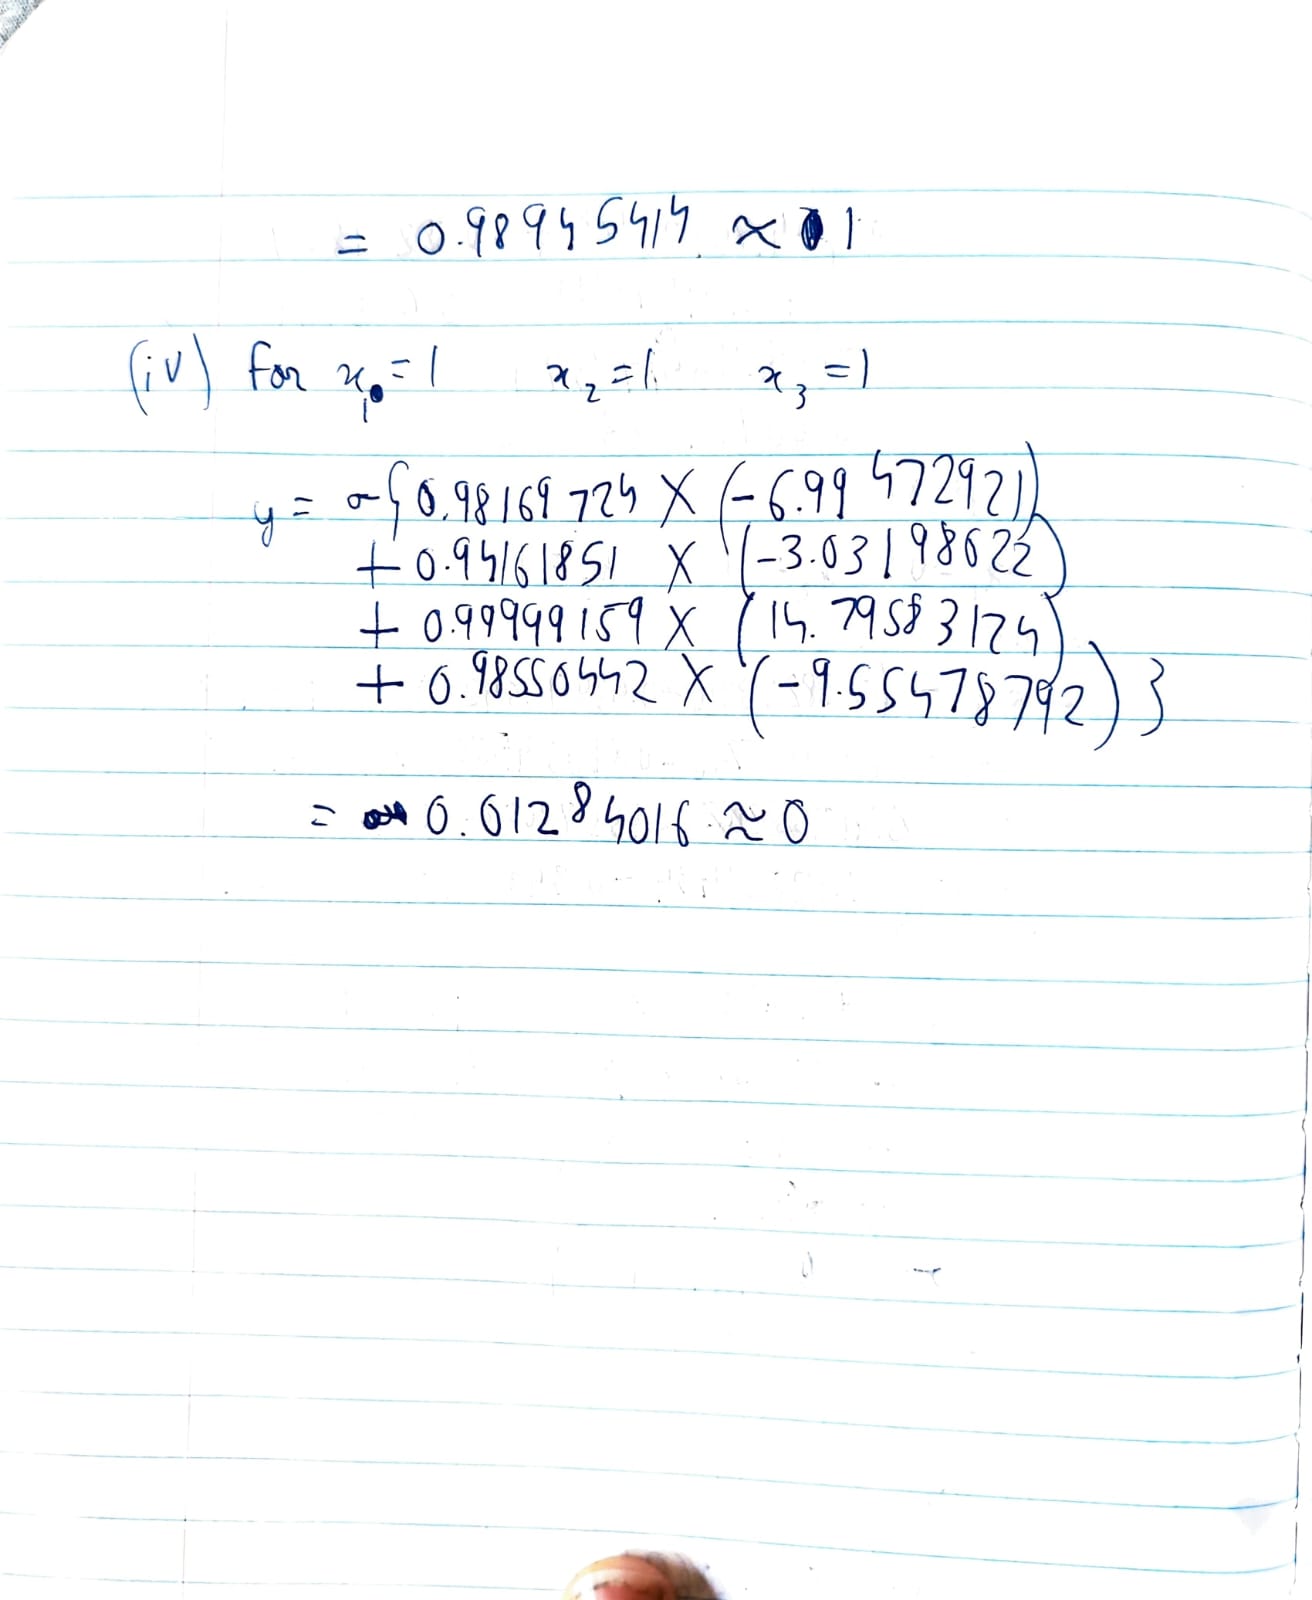 = 0.98945414 ≈ 1
(iv) for x₁ = 1 x₂ = 1 x₃ = 1
y = σ{0.98169724 × (-6.99472921)
+ 0.94161851 × (-3.03198622)
+ 0.99999159 × (14.79583124)
+ 0.98550442 × (-9.55478792)}
= 0.01284016 ≈ 0